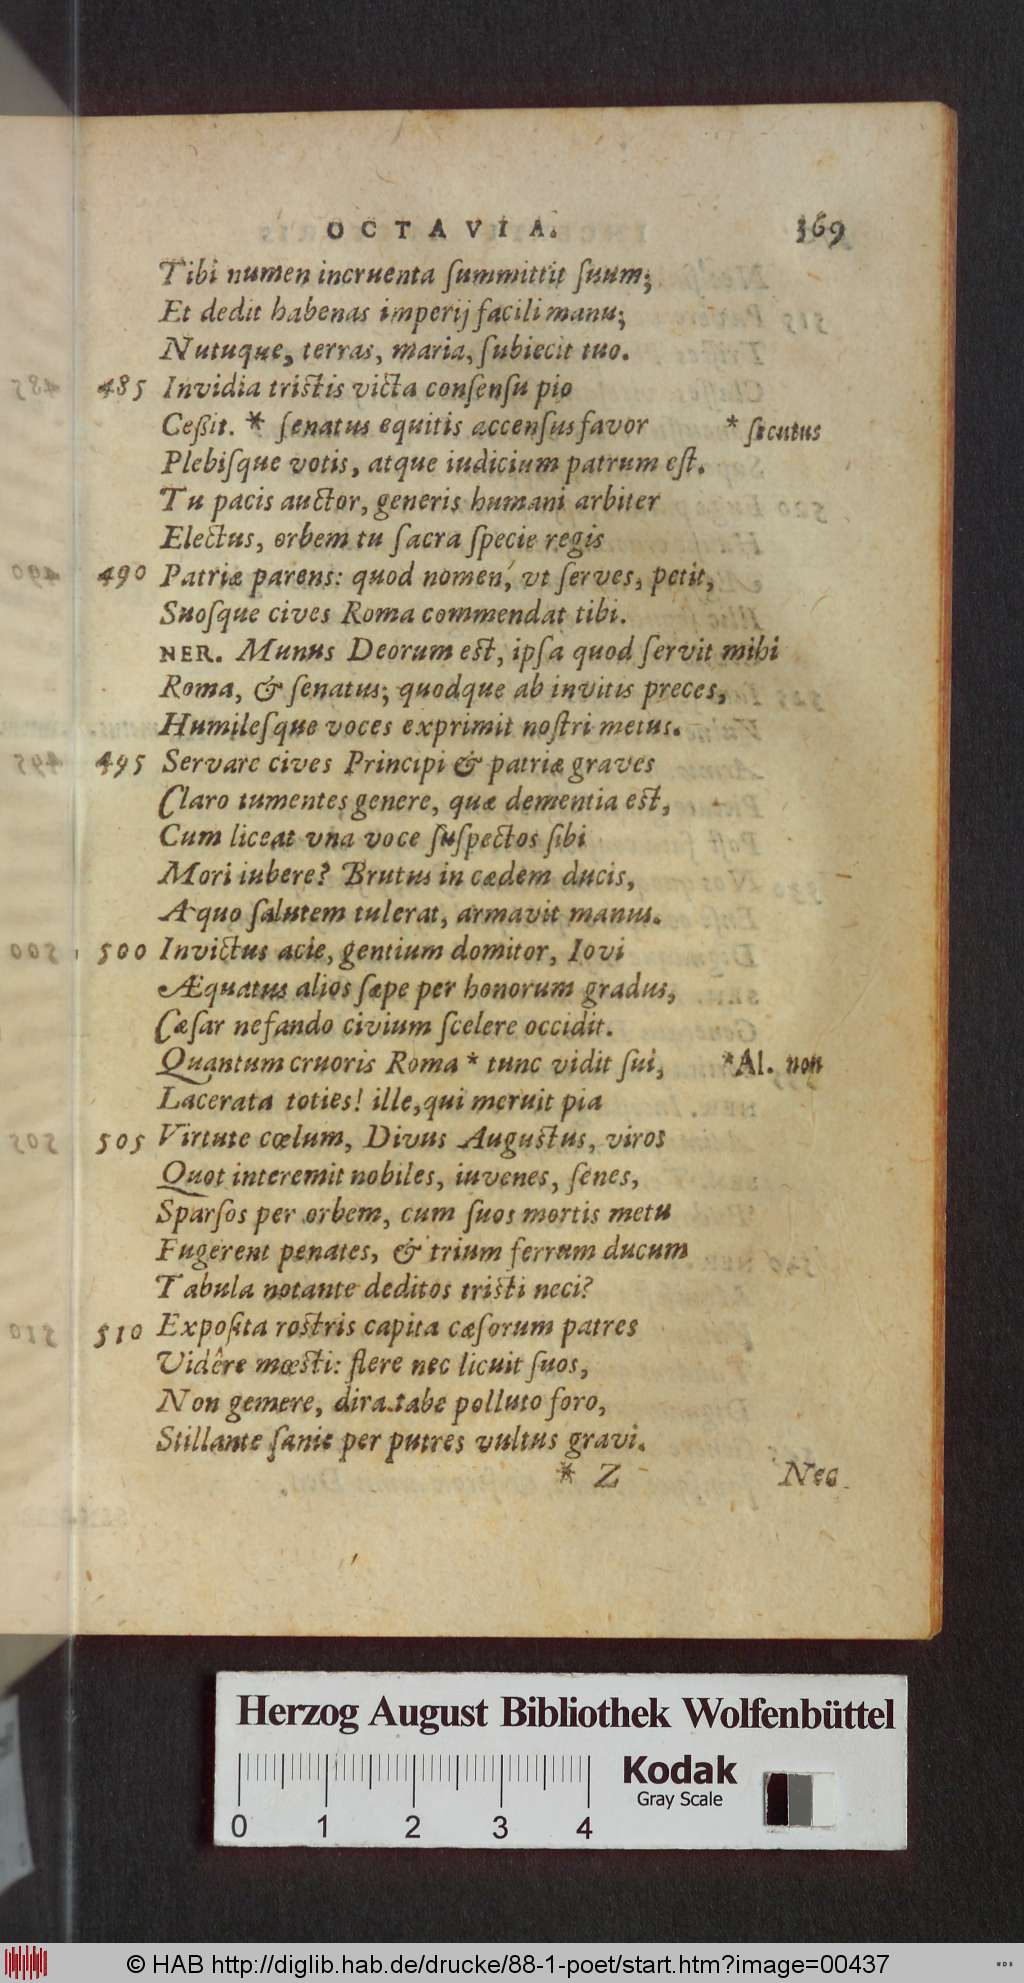 OCTAVIA. 369
Tibi numen incruenta ſummittit ſuum;
Et dedit habenas imperij facili manu;
Nutuque, terras, maria, ſubiecit tuo.
485 Invidia tristis victa conſenſu pio
Ceßit. * ſenatus equitis accenſus favor * ſecutus
Plebiſque votis, atque iudicium patrum eſt.
Tu pacis auctor, generis humani arbiter
Electus, orbem tu ſacra ſpecie regis
490 Patriæ parens: quod nomen, vt ſerves, petit,
Suoſque cives Roma commendat tibi.
NER. Munus Deorum est, ipſa quod ſervit mihi
Roma, & ſenatus; quodque ab invitis preces,
Humileſque voces exprimit noſtri metus.
495 Servare cives Principi & patriæ graves
Claro tumentes genere, quæ dementia est,
Cum liceat vna voce ſuſpectos ſibi
Mori iubere? Brutus in cædem ducis,
A quo ſalutem tulerat, armavit manus.
500 Invictus acie, gentium domitor, Iovi
Æquatus alios ſæpe per honorum gradus,
Cæſar nefando civium ſcelere occidit.
Quantum cruoris Roma * tunc vidit ſui, *Al. non
Lacerata toties! ille, qui meruit pia
505 Virtute cœlum, Divus Augustus, viros
Quot interemit nobiles, iuvenes, ſenes,
Sparſos per orbem, cum ſuos mortis metu
Fugerent penates, & trium ferrum ducum
Tabula notante deditos tristi neci?
510 Expoſita rostris capita cæſorum patres
Vidêre mœsti: flere nec licuit ſuos,
Non gemere, dira tabe polluto foro,
Stillante ſanie per putres vultus gravi.
* Z Nec
Herzog August Bibliothek Wolfenbüttel
Kodak
Gray Scale
0 1 2 3 4
© HAB http://diglib.hab.de/drucke/88-1-poet/start.htm?image=00437